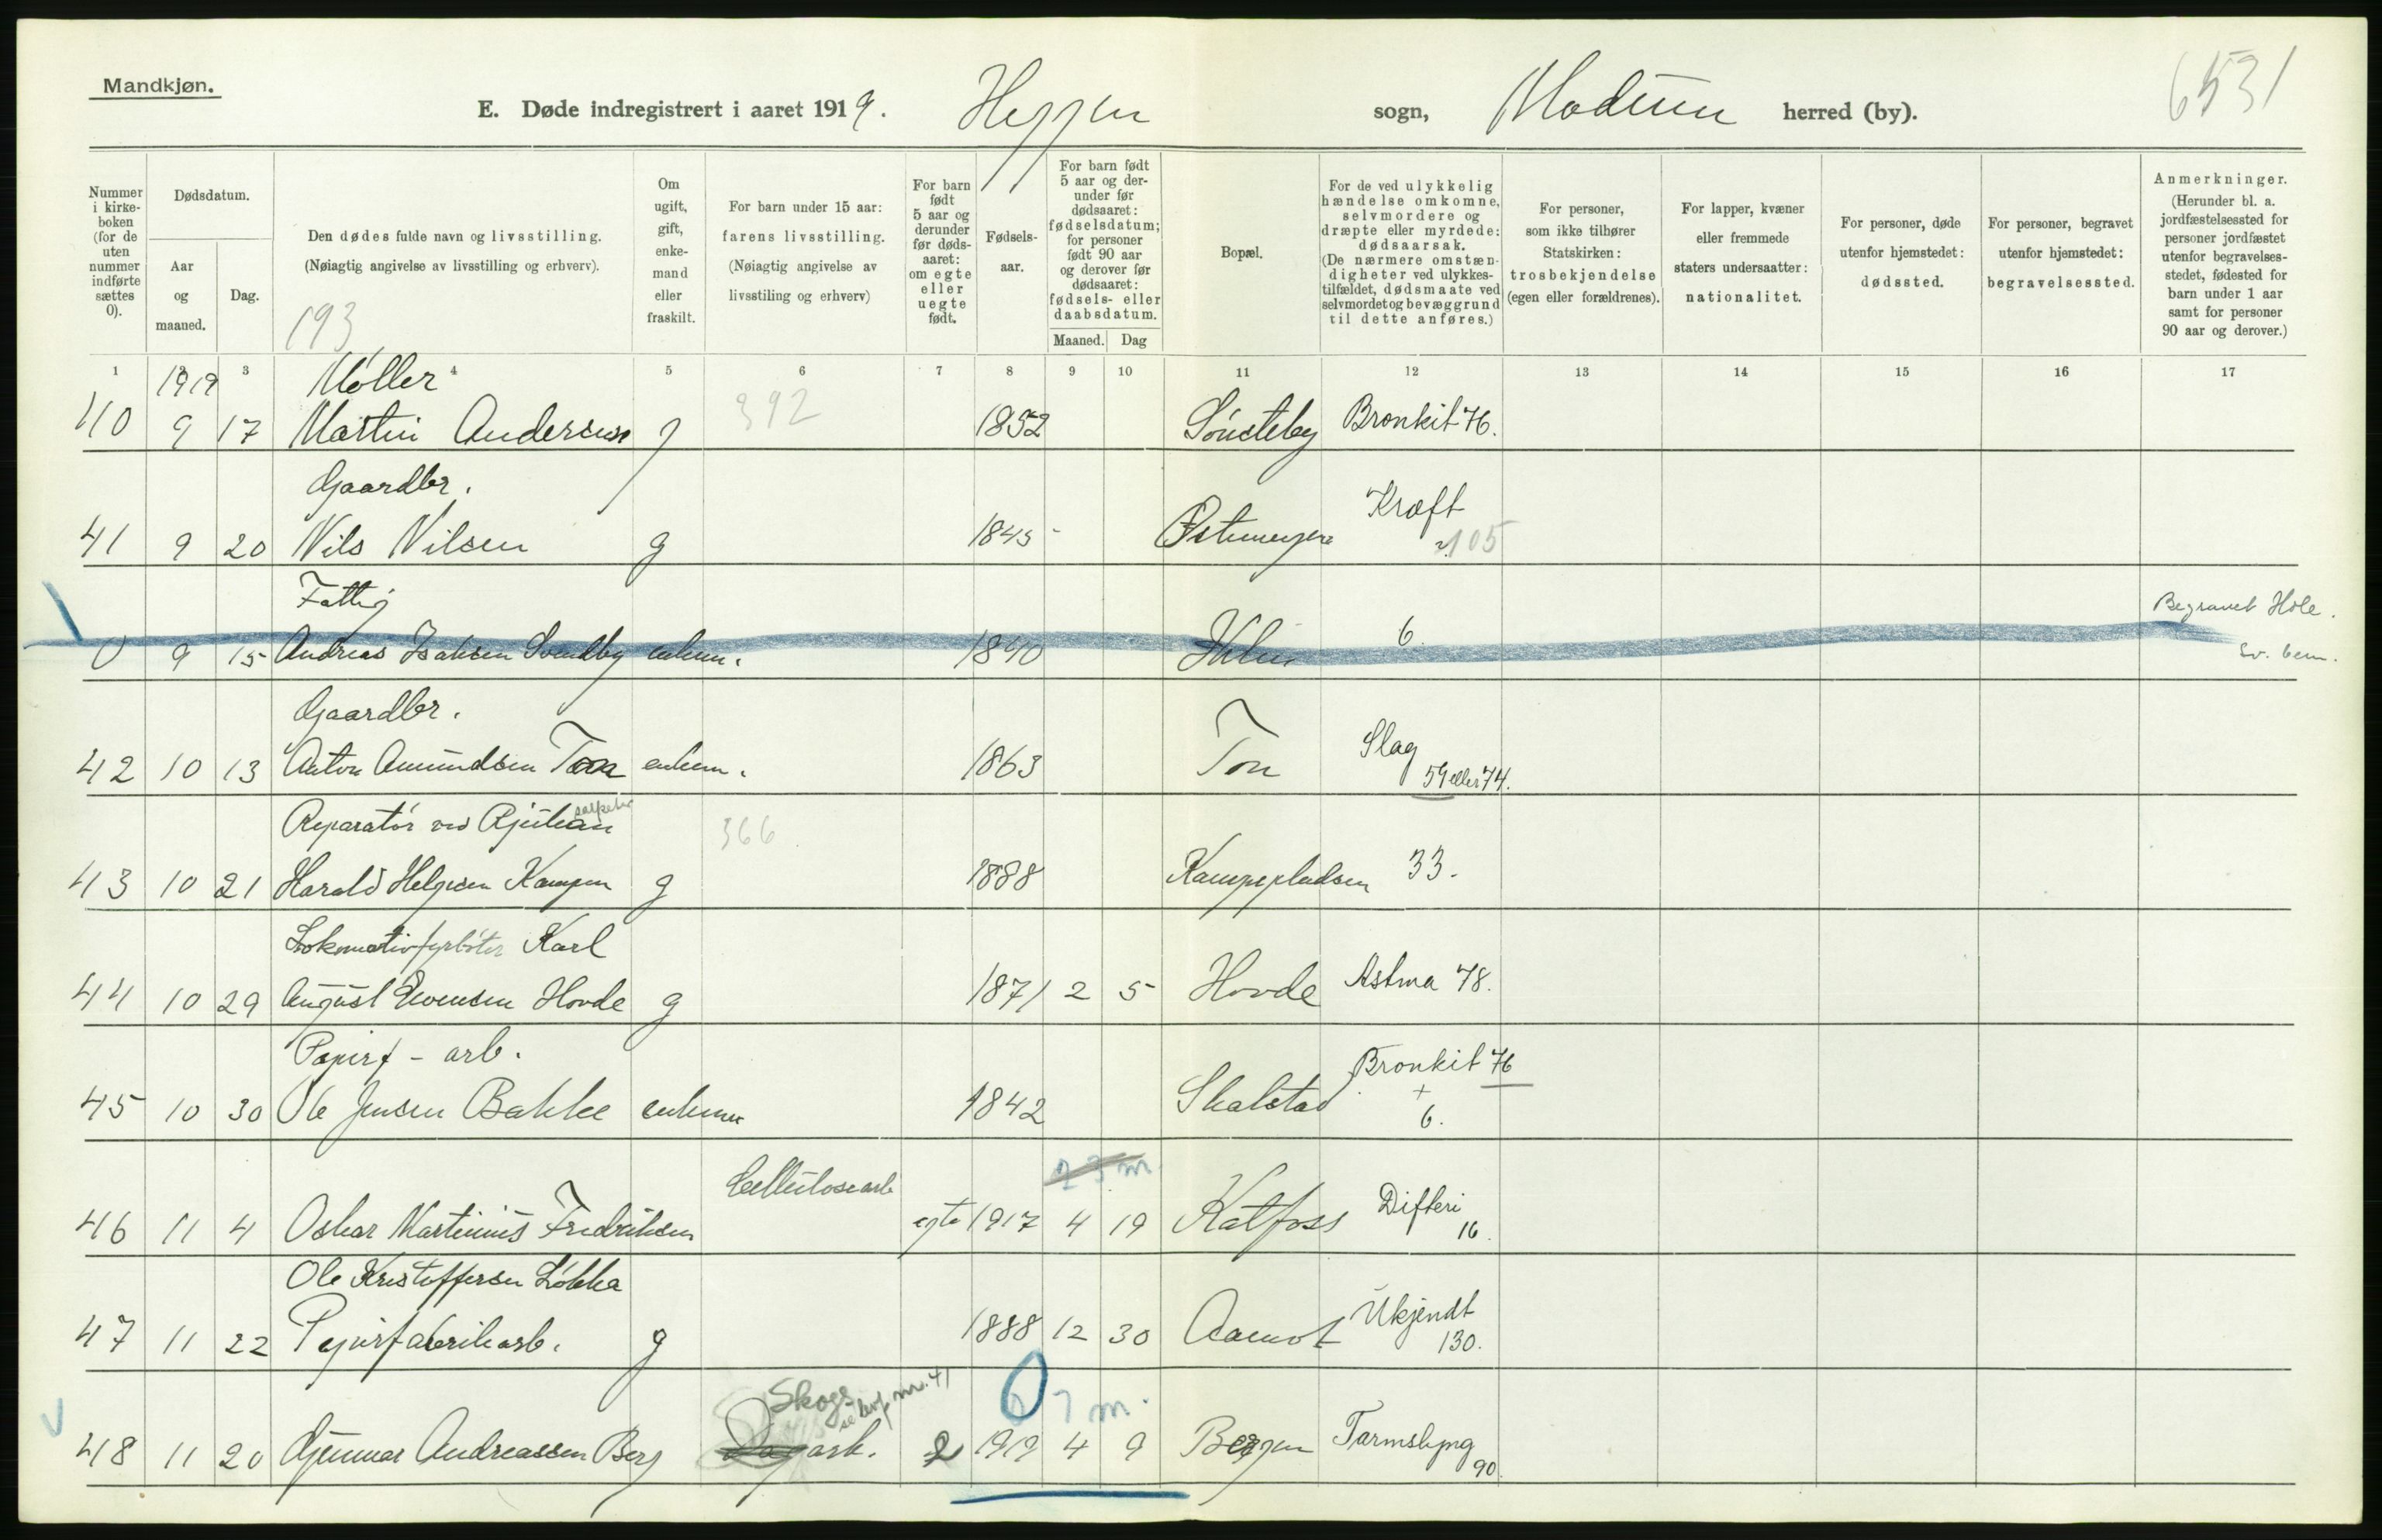 Mandkjøn.
E. Døde indregistrert i aaret 1919. Heggen sogn, Modum herred (by).
6531
Nummer i kirkeboken (for de uten nummer indførte sættes 0).
Dødsdatum.
Aar og maaned.
Dag.
Den dødes fulde navn og livsstilling.
(Nøiagtig angivelse av livsstilling og erhverv).
193
Om ugift, gift, enkemand eller fraskilt.
For barn under 15 aar: farens livsstilling.
(Nøiagtig angivelse av livsstiling og erhverv)
For barn født 5 aar og derunder før dødsaaret: om egte eller uegte født.
Fødselsaar.
For barn født 5 aar og derunder før dødsaaret: fødselsdatum; for personer født 90 aar og derover før dødsaaret: fødsels- eller daabsdatum.
Maaned. Dag
Bopæl.
For de ved ulykkelig hændelse omkomne, selvmordere og dræpte eller myrdede: dødsaarsak.
(De nærmere omstændigheter ved ulykkestilfældet, dødsmaate ved selvmordet og bevæggrund til dette anføres.)
For personer, som ikke tilhører Statskirken: trosbekjendelse (egen eller forældrenes).
For lapper, kvæner eller fremmede staters undersaatter: nationalitet.
For personer, døde utenfor hjemstedet: dødssted.
For personer, begravet utenfor hjemstedet: begravelsessted.
Anmerkninger.
(Herunder bl. a. jordfæstelsessted for personer jordfæstet utenfor begravelsesstedet, fødested for barn under 1 aar samt for personer 90 aar og derover.)
1 2 3 4 5 6 7 8 9 10 11 12 13 14 15 16 17
1919 Møller
40 9 17 Martin Andersen g 392 1852 Sønsteby Bronkit 76.
Gaardbr. Kræft
41 9 20 Nils Nilsen g 1845 105
Fattig Begravet Hole.
0 9 15 Andreas Isaksen Svendby enkem. 1840 6.
Gaardbr. Slag
42 10 13 Anton Amundsen Toen enkem. 1863 Ton 59 eller 74.
Reparatør ved Rjukan salpeter 366
43 10 21 Harald Helgesen Kampen g 1888 Kampepladsen 33.
Lokomotivfyrbøter Karl
44 10 29 August Evensen Hovde g 1871 2 5 Hovde Astma 78.
Papirf-arb. Bronkit 76
45 10 30 Ole Jensen Bakke enkem 1842 Skalstad + 6.
Cellulosearb 2 3 m
46 11 4 Oskar Martinius Fredriksen egte 1917 4 19 Katfoss Difteri 16.
Ole Kristoffersen Løkka Ukjendt
47 11 22 Papirfabrikarb. g 1888 12 30 Aamot 130.
Skogs se levf nr. 41 0 7 m.
48 11 20 Gunnar Andreassen Berg Dagarb. 2 1919 4 9 Tarmslyng 90.